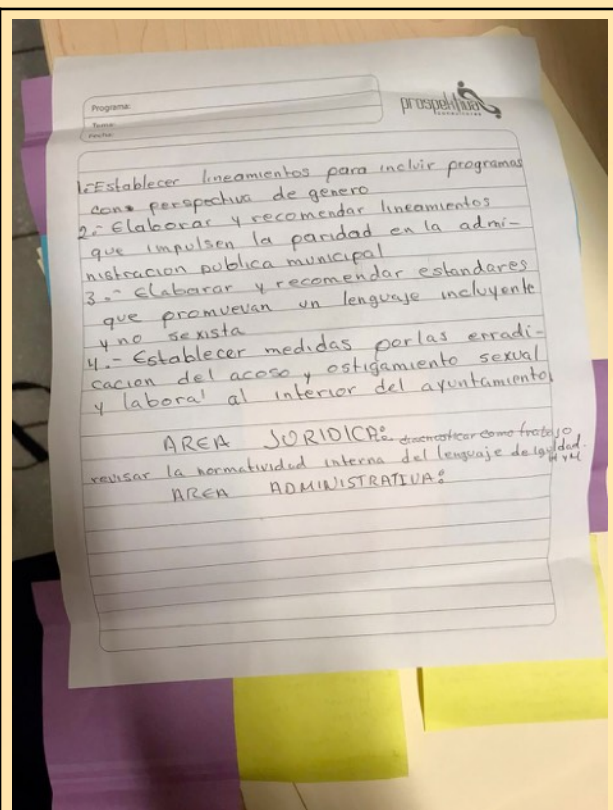 Programa:
Tema:
Fecha:
prospekhua
consultores
1.-Establecer lineamientos para incluir programas
con perspectiva de genero
2.- Elaborar y recomendar lineamientos
que impulsen la paridad en la admi-
nistracion publica municipal
3.- Elabarar y recomendar estandares
que promuevan un lenguaje incluyente
y no sexista
4.- Establecer medidas por las erradi-
cacion del acoso y ostigamiento sexual
y laboral al interior del ayuntamiento
AREA JURIDICA: como trabajo
revisar la normatividad interna del lenguaje de
H y M
AREA ADMINISTRATIVA: